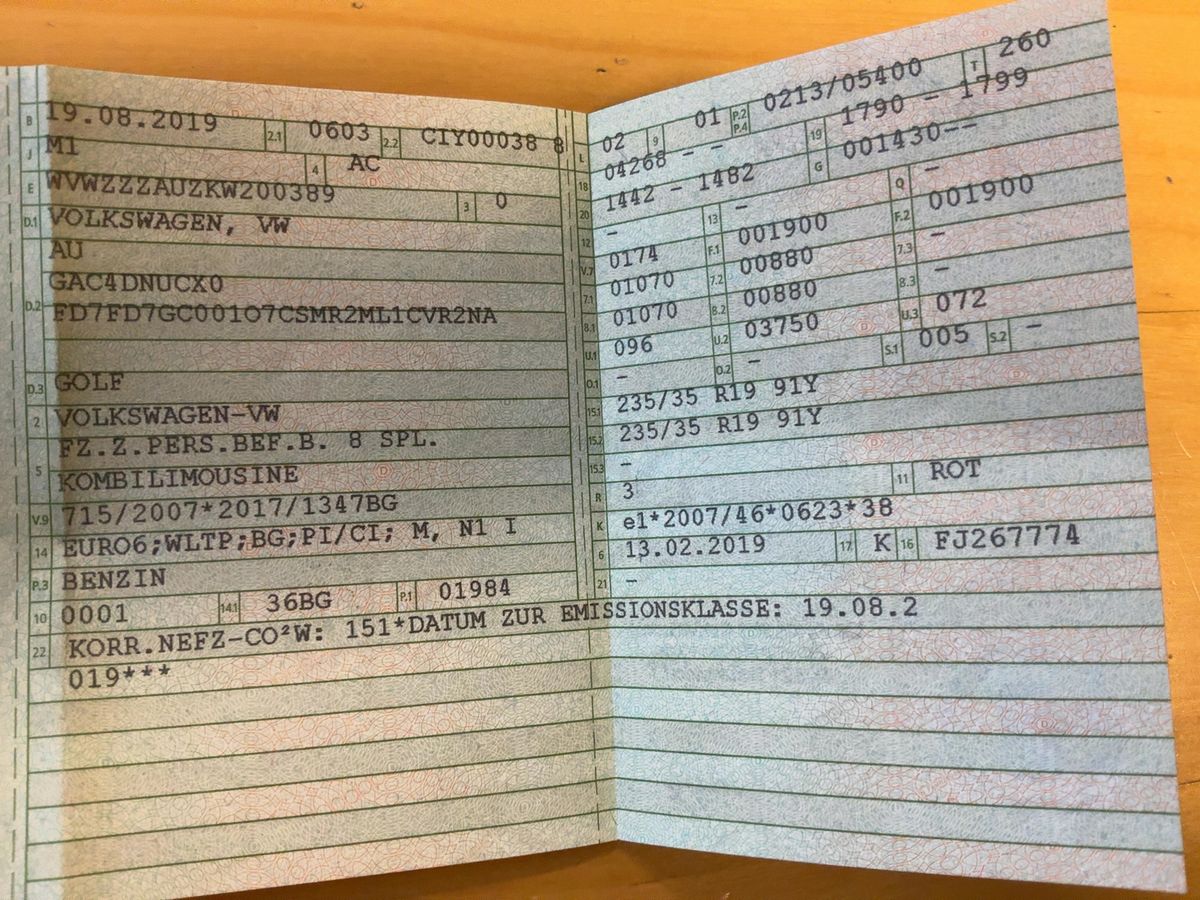 B 19.08.2019 2.1 0603 2.2 CIY00038 8
J M1 4 AC
E WVWZZZAUZKW200389 3 0
D.1 VOLKSWAGEN, VW
AU
GAC4DNUCX0
D.2 FD7FD7GC001O7CSMR2ML1CVR2NA
D.3 GOLF
2 VOLKSWAGEN-VW
FZ.Z.PERS.BEF.B. 8 SPL.
5 KOMBILIMOUSINE
V.9 715/2007*2017/1347BG
14 EURO6;WLTP;BG;PI/CI; M, N1 I
P.3 BENZIN
10 0001 14.1 36BG P.1 01984
L 02 9 01 P.2 P.4 0213/05400 T 260
18 04268 - - 19 1790 - 1799
20 1442 - 1482 G 001430--
12 - 13 - Q -
V.7 0174 F.1 001900 F.2 001900
7.1 01070 7.2 00880 7.3 -
8.1 01070 8.2 00880 8.3 -
U.1 096 U.2 03750 U.3 072
O.1 - O.2 - S.1 005 S.2 -
15.1 235/35 R19 91Y
15.2 235/35 R19 91Y
15.3 -
R 3 11 ROT
K e1*2007/46*0623*38
6 13.02.2019 17 K 16 FJ267774
21 -
22 KORR.NEFZ-CO²W: 151*DATUM ZUR EMISSIONSKLASSE: 19.08.2
019***